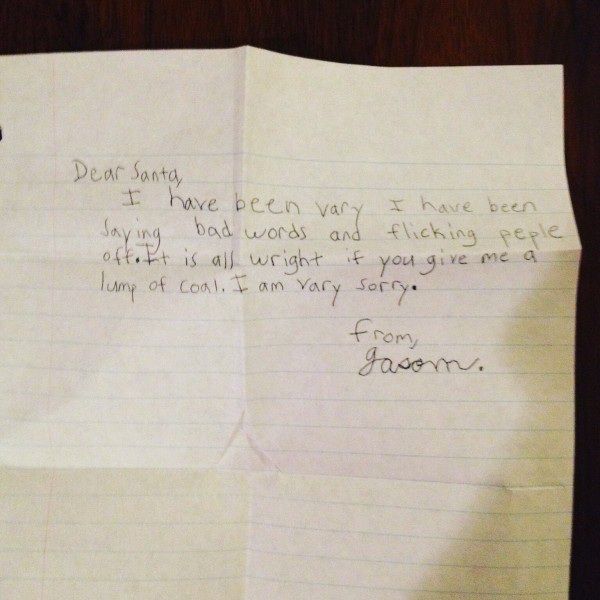 Dear Santa,
I have been vary I have been
saying bad words and flicking peple
off. It is all wright if you give me a
lump of coal. I am vary sorry.
from,
Jasom.